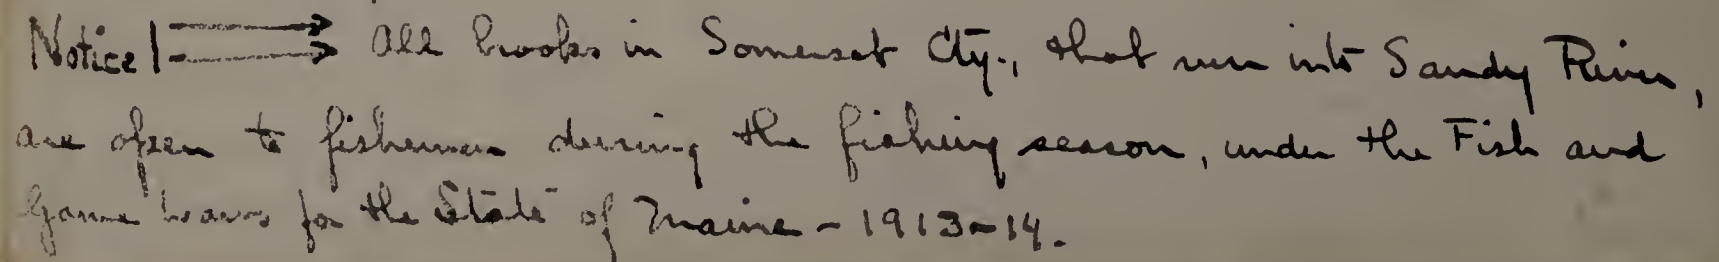 Notice! ⟶⟶ All brooks in Somerset Cty., that run into Sandy River,
are open to fishermen during the fishing season, under the Fish and
Game Laws for the State of Maine - 1913-14.